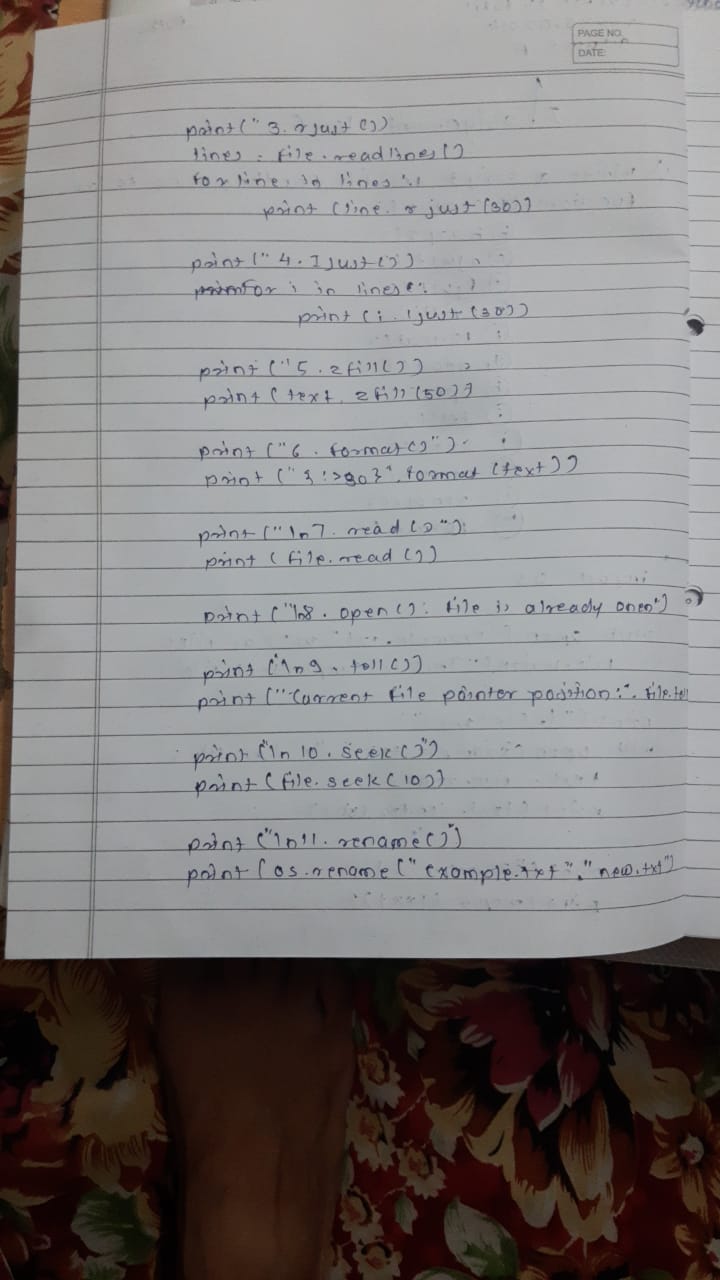 PAGE NO.
DATE:
print(" 3. rjust ())
lines = file.readlines()
for line in lines:
print (line.rjust(30))
print (" 4. ljust())
for i in lines:
print (i.ljust(30))
print ("5. zfill())
print (text.zfill(50))
print ("6. format()")
print ("{:>30}".format (text))
print ("\n7. read()")
print (file.read())
print ("\n8. open(): file is already open")
print ("\n9. tell())
print ("Current file pointer position:", file.tel
print ("\n 10. seek()")
print (file.seek(10))
print ("\n11. rename()")
print (os.rename ("example.txt", "new.txt")